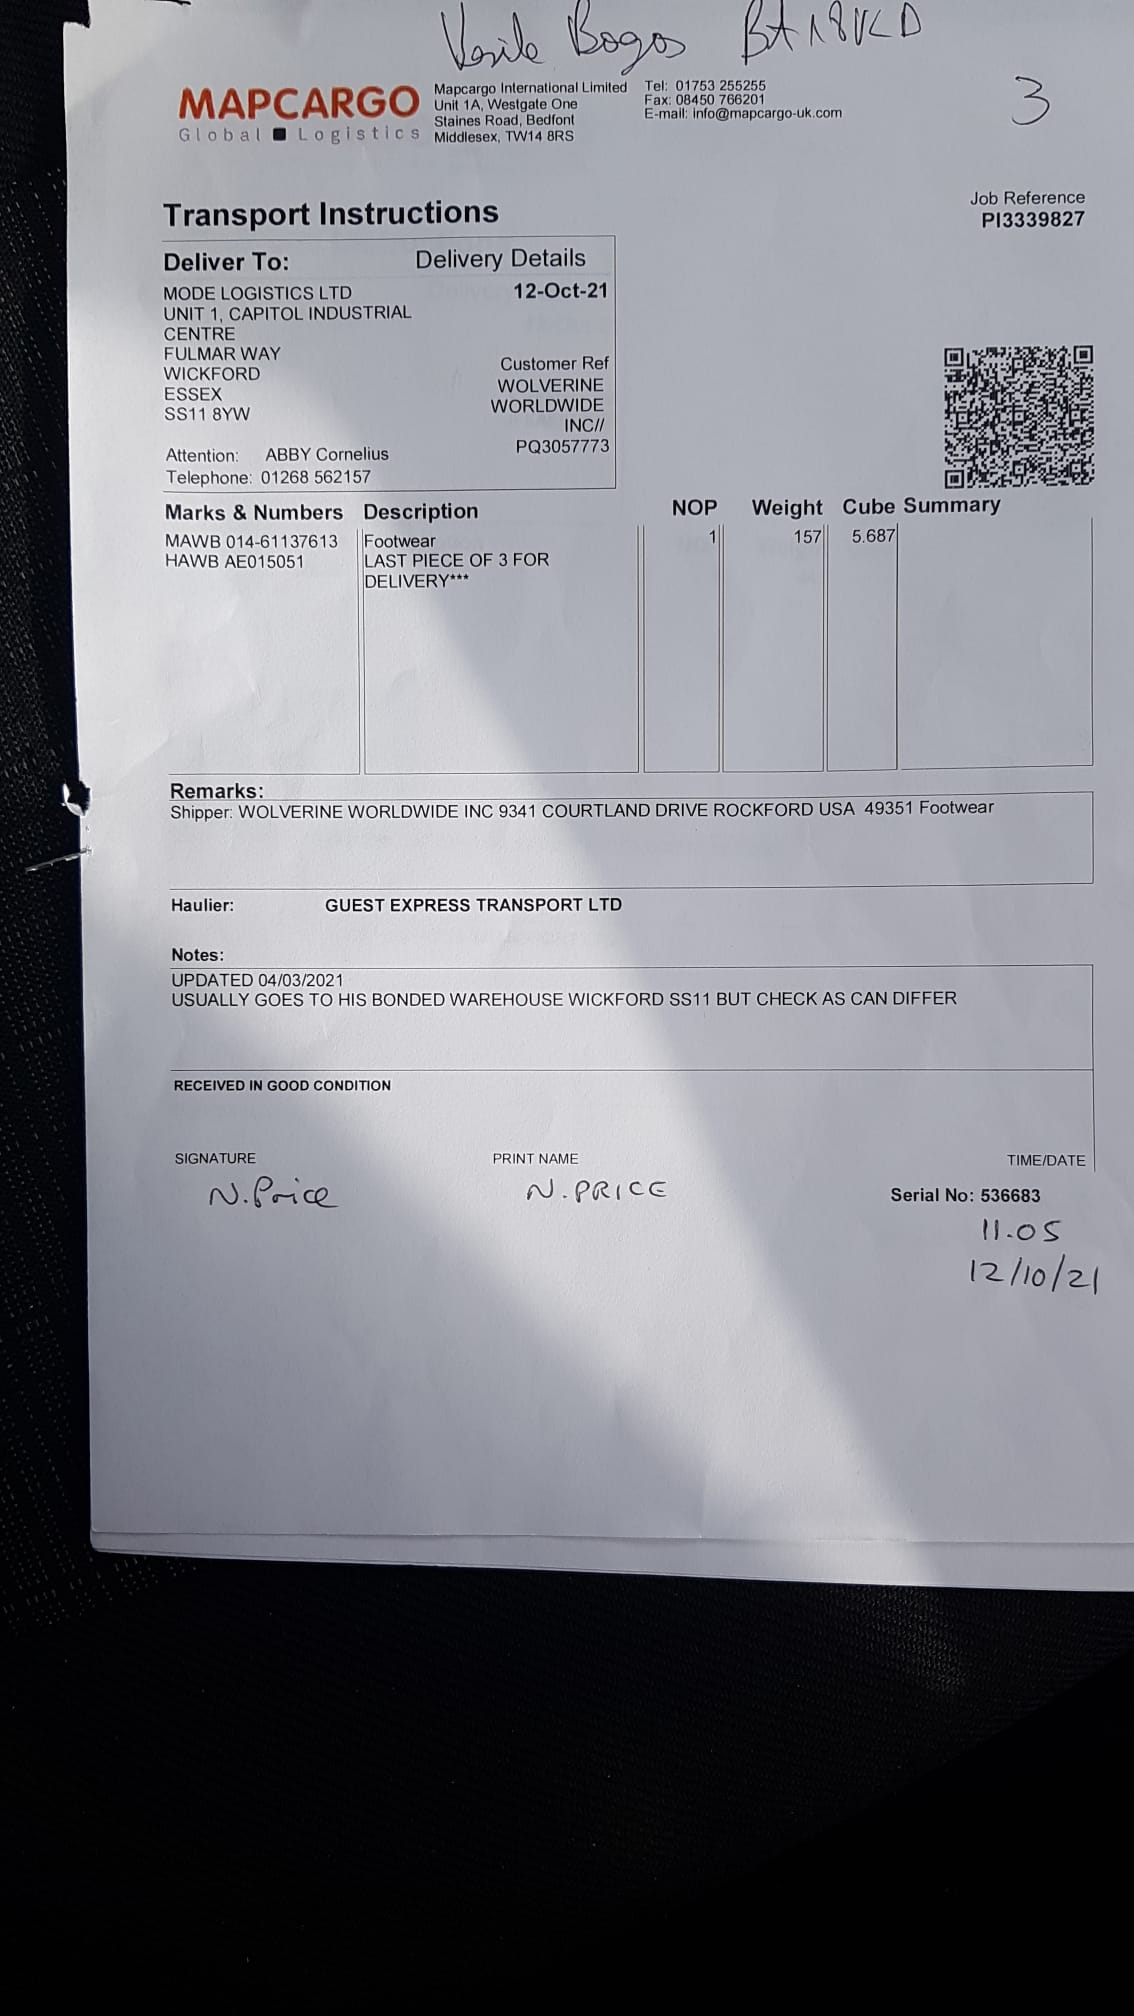 Vasile Bogos BA18VCD
3
MAPCARGO
Global Logistics
Mapcargo International Limited
Unit 1A, Westgate One
Staines Road, Bedfont
Middlesex, TW14 8RS
Tel: 01753 255255
Fax: 08450 766201
E-mail: info@mapcargo-uk.com
Transport Instructions
Job Reference
PI3339827
Deliver To:
MODE LOGISTICS LTD
UNIT 1, CAPITOL INDUSTRIAL
CENTRE
FULMAR WAY
WICKFORD
ESSEX
SS11 8YW
Attention: ABBY Cornelius
Telephone: 01268 562157
Delivery Details
12-Oct-21
Customer Ref
WOLVERINE
WORLDWIDE
INC//
PQ3057773
Marks & Numbers Description NOP Weight Cube Summary
MAWB 014-61137613 Footwear 1 157 5.687
HAWB AE015051 LAST PIECE OF 3 FOR
DELIVERY***
Remarks:
Shipper: WOLVERINE WORLDWIDE INC 9341 COURTLAND DRIVE ROCKFORD USA 49351 Footwear
Haulier: GUEST EXPRESS TRANSPORT LTD
Notes:
UPDATED 04/03/2021
USUALLY GOES TO HIS BONDED WAREHOUSE WICKFORD SS11 BUT CHECK AS CAN DIFFER
RECEIVED IN GOOD CONDITION
SIGNATURE PRINT NAME TIME/DATE
N.Price N.PRICE
Serial No: 536683
11.05
12/10/21